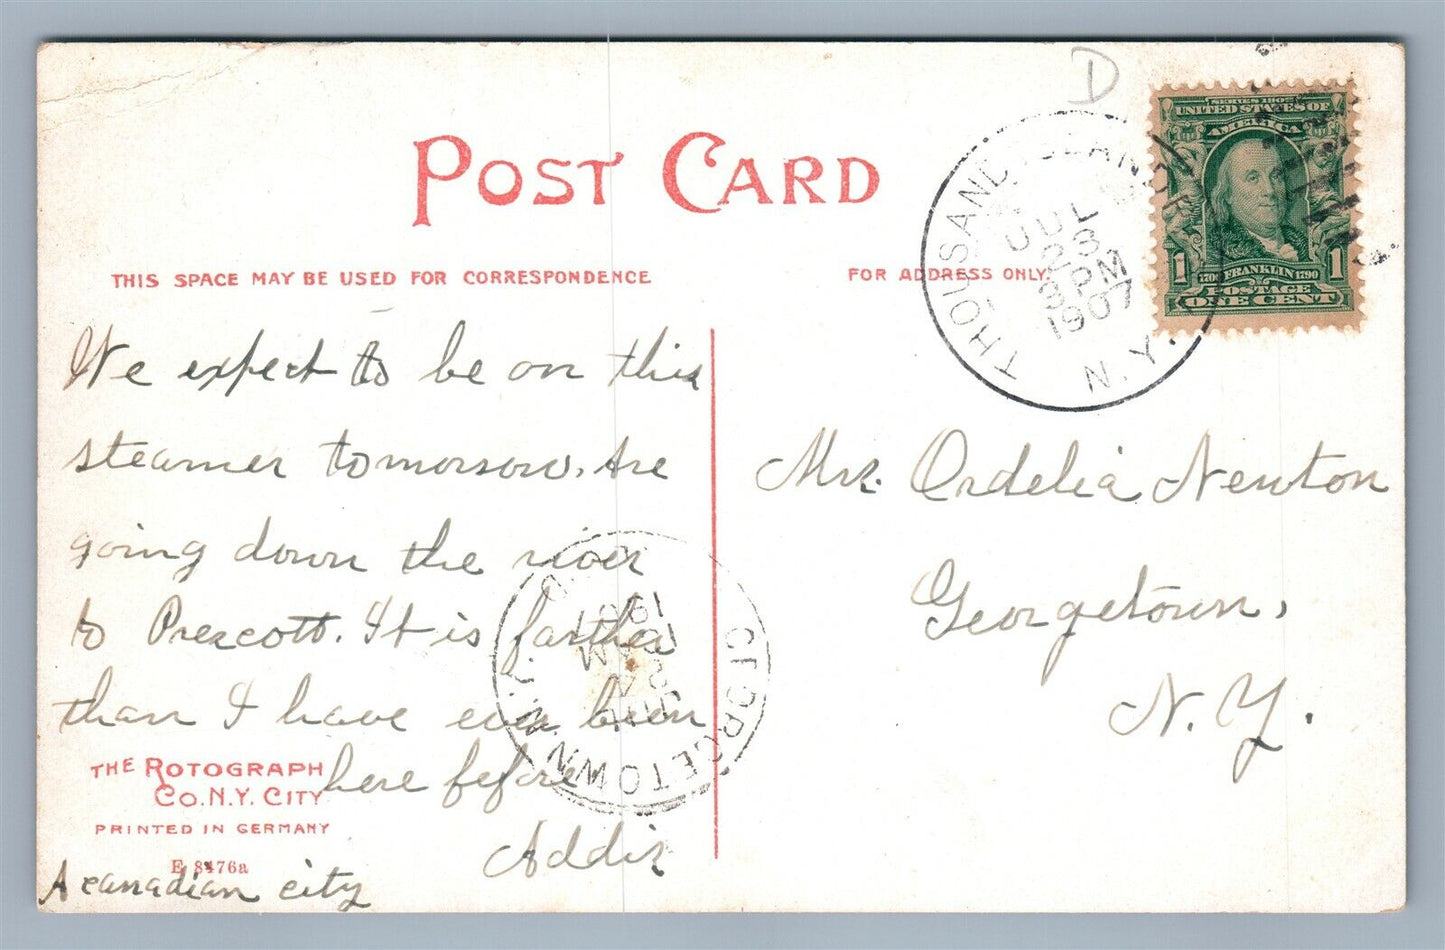 D
POST CARD
THIS SPACE MAY BE USED FOR CORRESPONDENCE
FOR ADDRESS ONLY.
SERIES 1902
UNITED STATES OF
AMERICA
1 1706 FRANKLIN 1790 1
POSTAGE
ONE CENT
THOUSAND ISLAND
JUL
23
3 PM
1907
N.Y.
We expect to be on this
steamer tomorrow. Are
going down the river
to Prescott. It is farther
than I have ever been
here before
Addie
A canadian city
Mrs. Ordelia Newton
Georgetown,
N.Y.
GEORGETOWN
N.Y.
1907
AM
THE ROTOGRAPH
CO. N.Y. CITY
PRINTED IN GERMANY
E 8476a